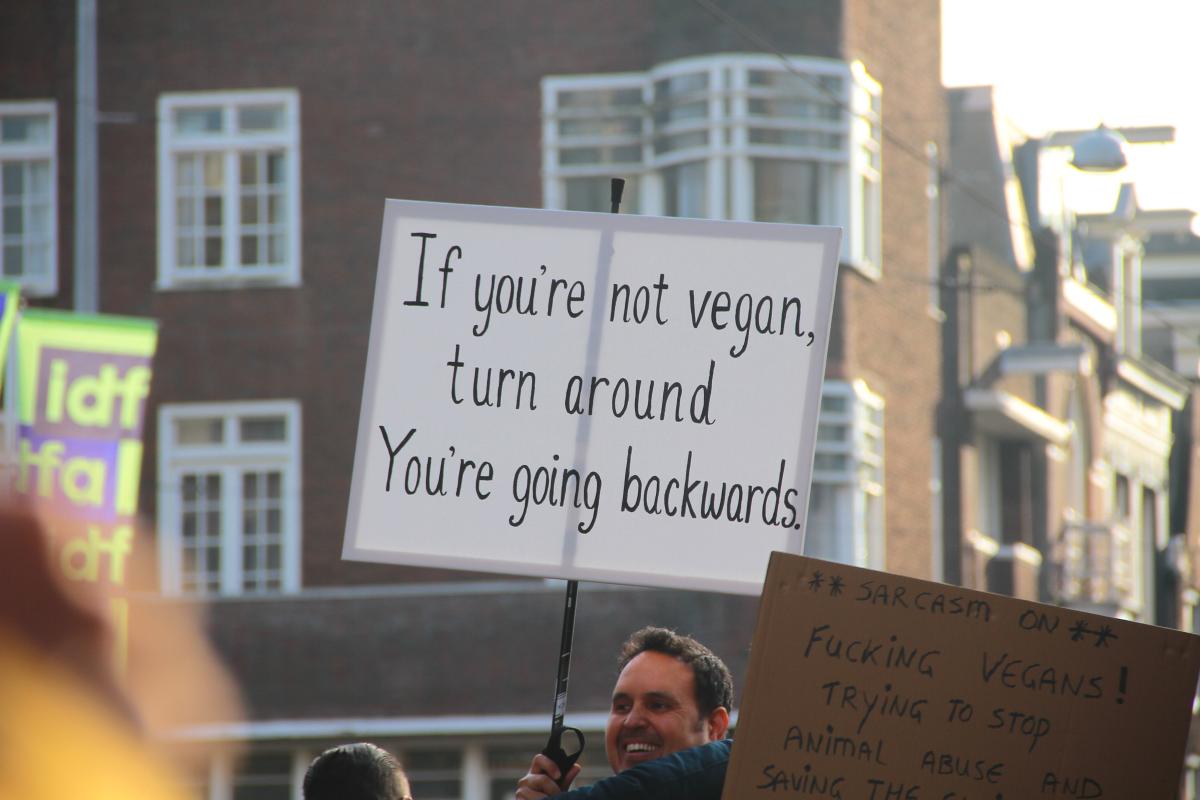 If you're not vegan,
turn around
You're going backwards.
** SARCASM ON **
FUCKING VEGANS!
TRYING TO STOP
ANIMAL ABUSE AND
SAVING THE
idf
tfa
df